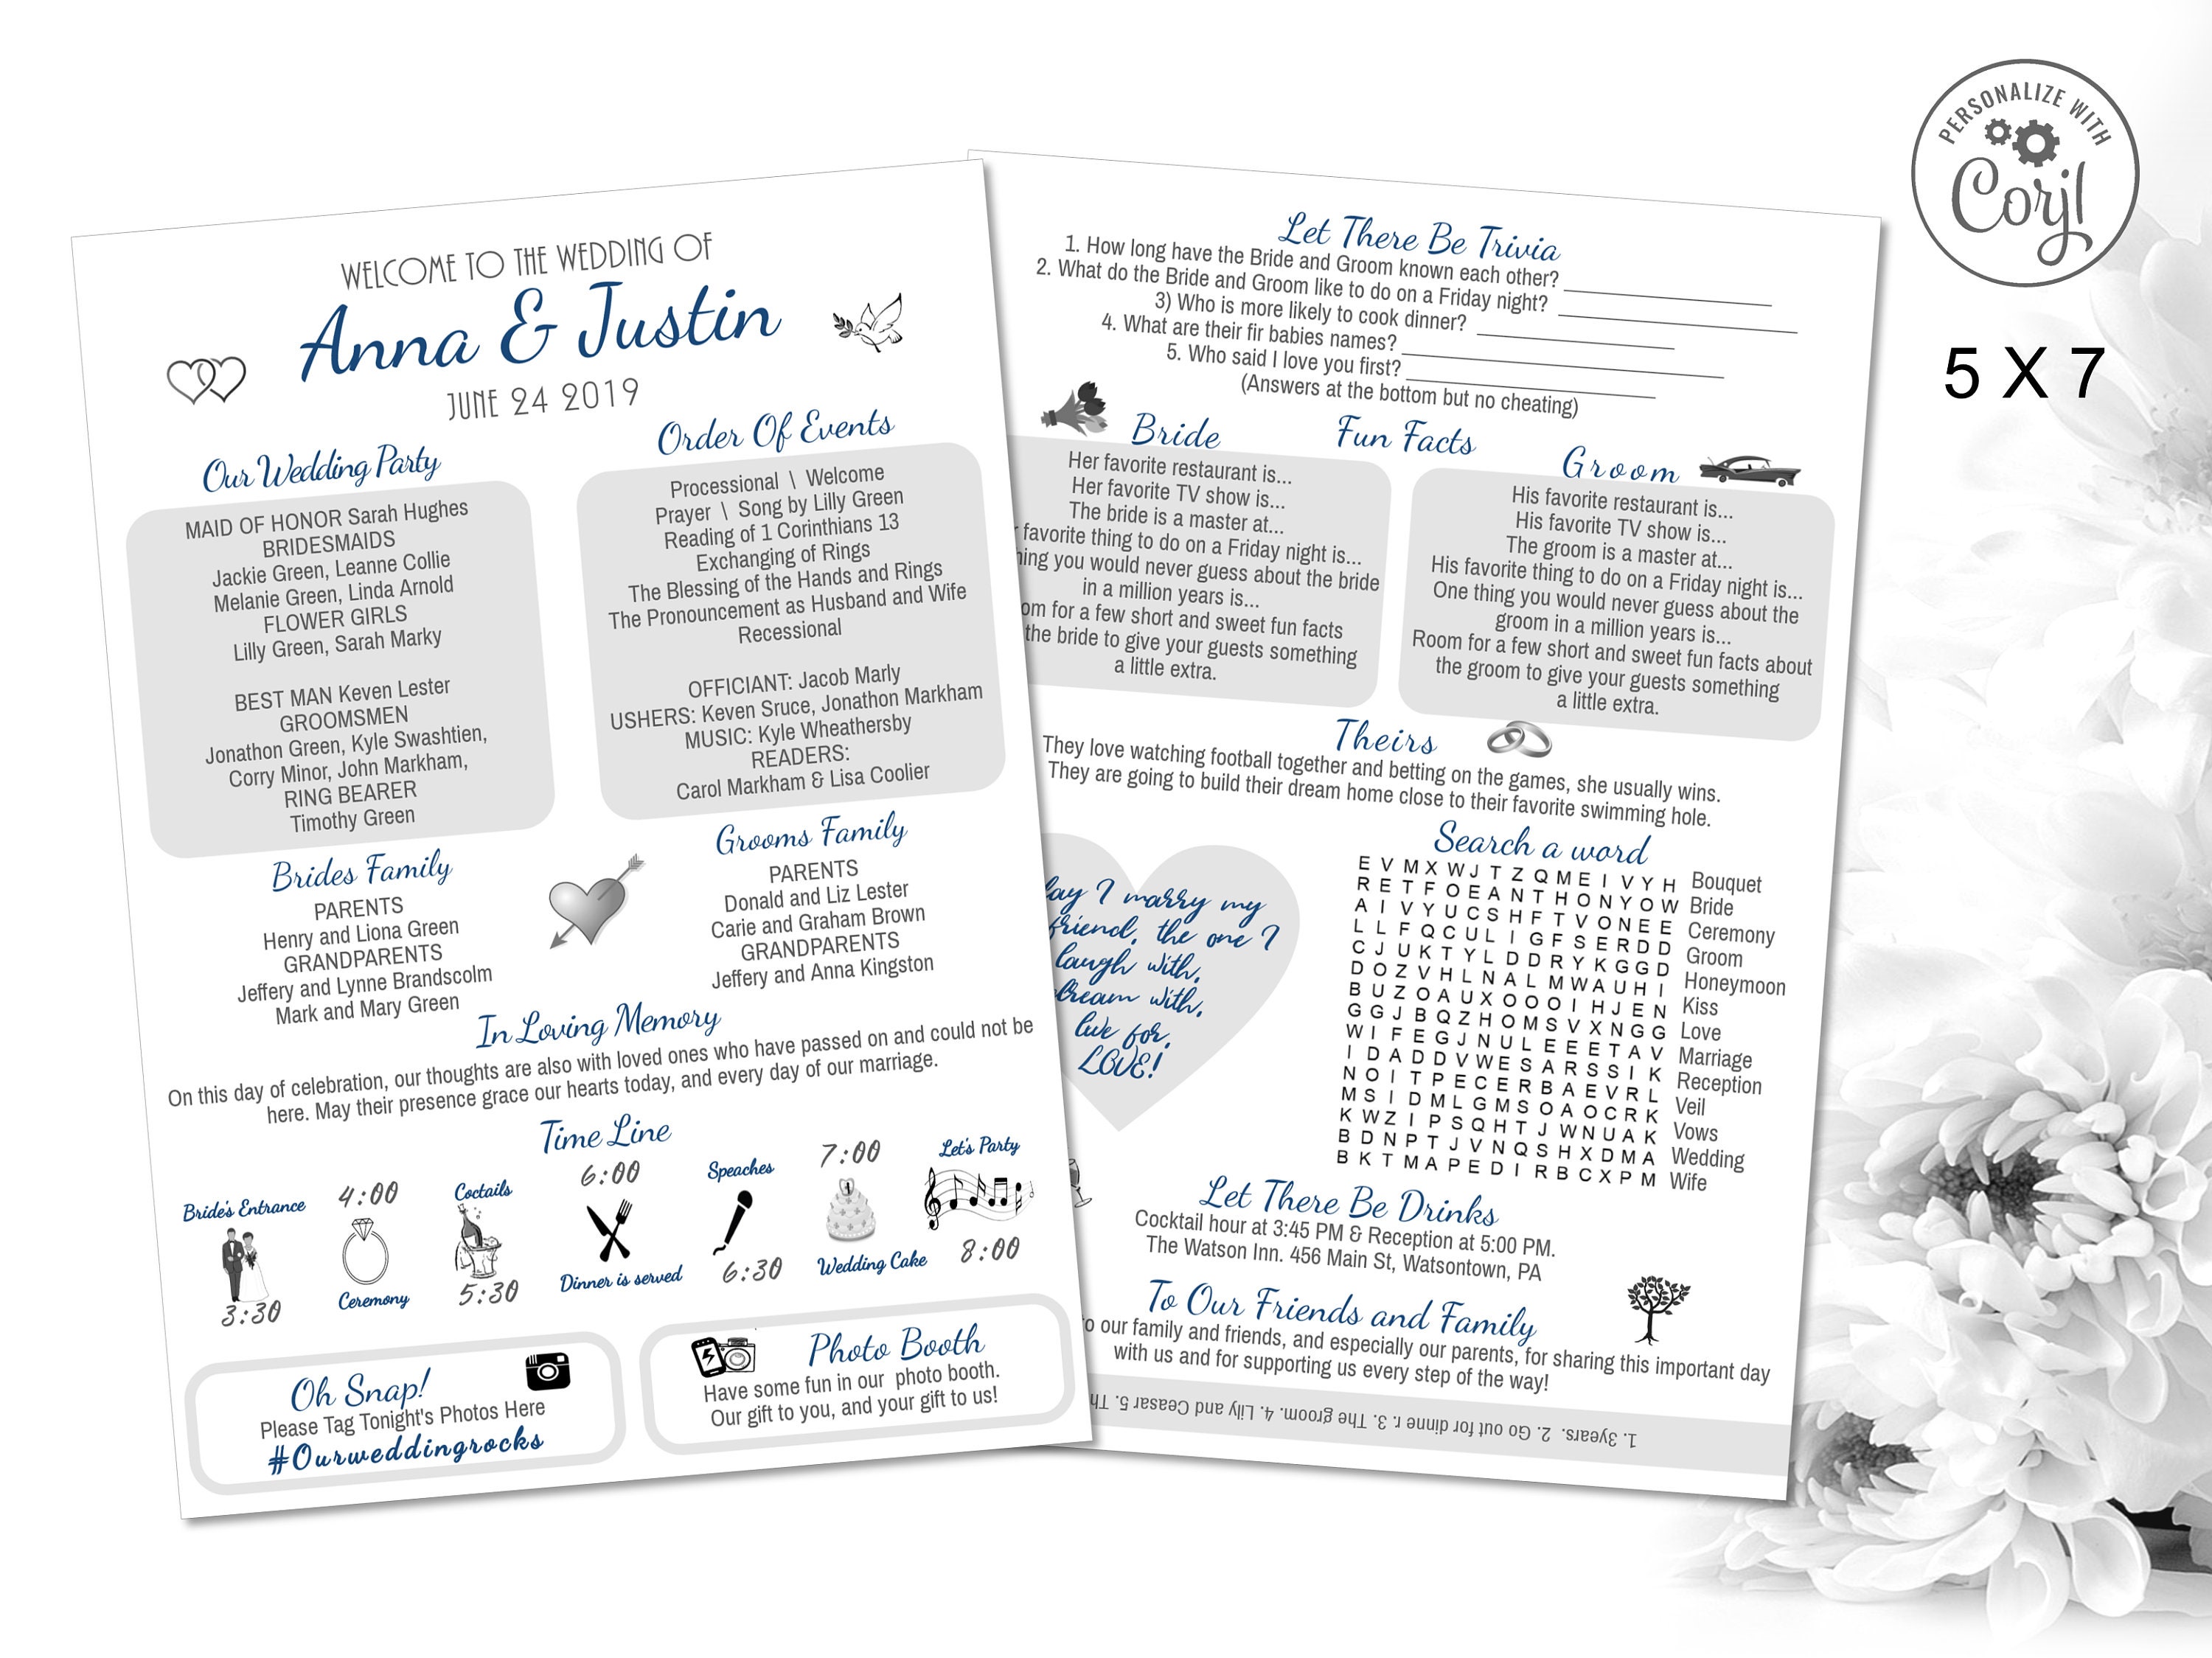 PERSONALIZE WITH
Corjl
5 X 7
WELCOME TO THE WEDDING OF
Anna & Justin
JUNE 24 2019
Our Wedding Party
MAID OF HONOR Sarah Hughes
BRIDESMAIDS
Jackie Green, Leanne Collie
Melanie Green, Linda Arnold
FLOWER GIRLS
Lilly Green, Sarah Marky
BEST MAN Keven Lester
GROOMSMEN
Jonathon Green, Kyle Swashtien,
Corry Minor, John Markham,
RING BEARER
Timothy Green
Order Of Events
Processional \ Welcome
Prayer \ Song by Lilly Green
Reading of 1 Corinthians 13
Exchanging of Rings
The Blessing of the Hands and Rings
The Pronouncement as Husband and Wife
Recessional
OFFICIANT: Jacob Marly
USHERS: Keven Sruce, Jonathon Markham
MUSIC: Kyle Wheathersby
READERS:
Carol Markham & Lisa Coolier
Brides Family
PARENTS
Henry and Liona Green
GRANDPARENTS
Jeffery and Lynne Brandscolm
Mark and Mary Green
Grooms Family
PARENTS
Donald and Liz Lester
Carie and Graham Brown
GRANDPARENTS
Jeffery and Anna Kingston
In Loving Memory
On this day of celebration, our thoughts are also with loved ones who have passed on and could not be
here. May their presence grace our hearts today, and every day of our marriage.
Time Line
Bride's Entrance
3:30
4:00
Ceremony
Coctails
5:30
6:00
Dinner is served
Speaches
6:30
7:00
Wedding Cake
Let's Party
8:00
Oh Snap!
Please Tag Tonight's Photos Here
#Ourweddingrocks
Photo Booth
Have some fun in our photo booth.
Our gift to you, and your gift to us!
Let There Be Trivia
1. How long have the Bride and Groom known each other?
2. What do the Bride and Groom like to do on a Friday night?
3) Who is more likely to cook dinner?
4. What are their fir babies names?
5. Who said I love you first?
(Answers at the bottom but no cheating)
Fun Facts
Bride
Her favorite restaurant is...
Her favorite TV show is...
The bride is a master at...
favorite thing to do on a Friday night is...
you would never guess about the bride
in a million years is...
for a few short and sweet fun facts
the bride to give your guests something
a little extra.
Groom
His favorite restaurant is...
His favorite TV show is...
The groom is a master at...
His favorite thing to do on a Friday night is...
One thing you would never guess about the
groom in a million years is...
Room for a few short and sweet fun facts about
the groom to give your guests something
a little extra.
Theirs
They love watching football together and betting on the games, she usually wins.
They are going to build their dream home close to their favorite swimming hole.
I marry my
friend, the one I
laugh with,
dream with,
live for,
LOVE!
Search a word
E V M X W J T Z Q M E I V Y H
R E T F O E A N T H O N Y O W
A I V Y U C S H F T V O N E E
L L F Q C U L I G F S E R D D
C J U K T Y L D D R Y K G G D
D O Z V H L N A L M W A U H I
B U Z O A U X O O O I H J E N
G G J B Q Z H O M S V X N G G
W I F E G J N U L E E E T A V
I D A D D V W E S A R S S I K
N O I T P E C E R B A E V R L
M S I D M L G M S O A O C R K
K W Z I P S Q H T J W N U A K
B D N P T J V N Q S H X D M A
B K T M A P E D I R B C X P M
Bouquet
Bride
Ceremony
Groom
Honeymoon
Kiss
Love
Marriage
Reception
Veil
Vows
Wedding
Wife
Let There Be Drinks
Cocktail hour at 3:45 PM & Reception at 5:00 PM.
The Watson Inn. 456 Main St, Watsontown, PA
To Our Friends and Family
our family and friends, and especially our parents, for sharing this important day
with us and for supporting us every step of the way!
1. 3years. 2. Go out for dinne r. 3. The groom. 4. Lily and Ceasar 5.